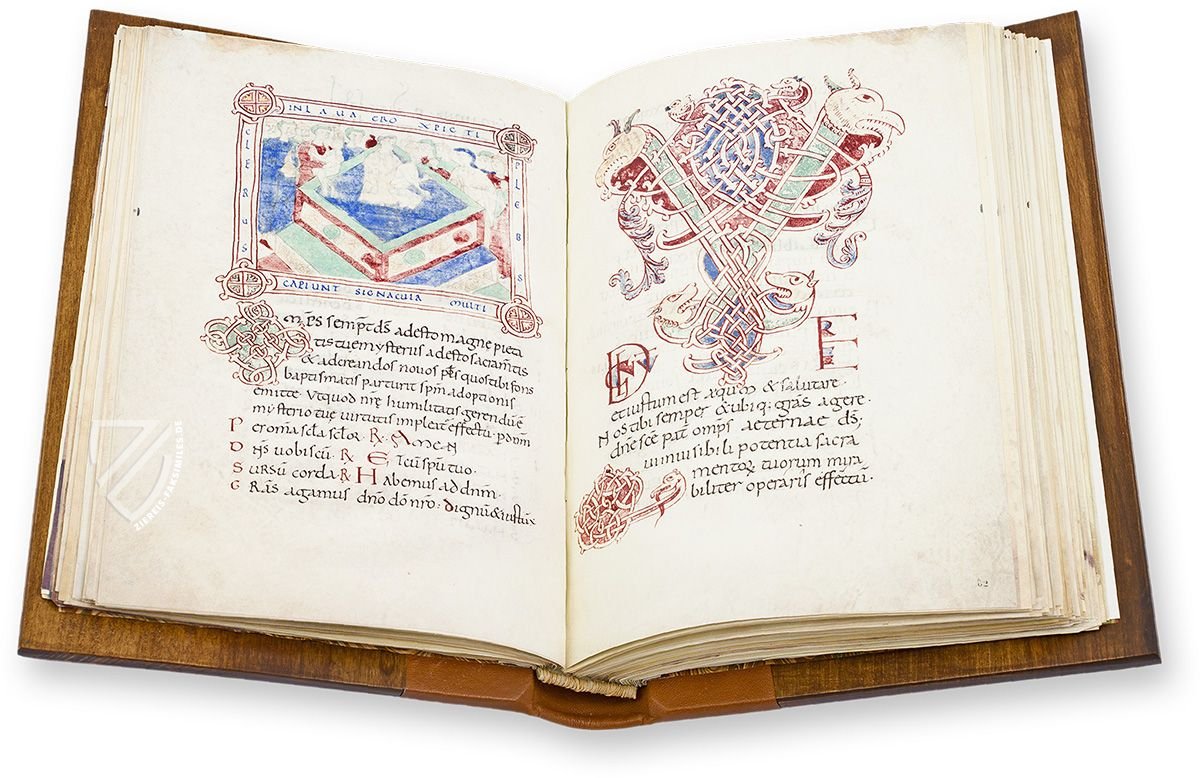 IN LAVACRO XPICTI
CLERUS
PLEBS
CAPIUNT SIGNACULA MULTI
OMPS SEMPT DS adesto magne pieta
tis tue mysteriis adesto sacramtis
& ad creandos novos pptos quos tibi fons
baptismatis parturit spm adoptionis
emitte. Ut quod nre humilitatis gerendu e
mysterio tue virtutis impleat effectu. p dnm
Per omia scla sclor. R. Amen
Dns vobiscu. R. Et cu spu tuo.
Sursu corda. R Habemus ad dnm.
Gras agamus dno do nro. Dignu & iustu
ZIEREIS-FAKSIMILES.DE
VERE
et iustum est aequm & salutare.
Nos tibi semper & ubiq. gras agere.
dne sce pat omps aeternae ds;
Qui invisibili potentia sacra
mentoR tuorum mira
biliter operaris effectu.
82